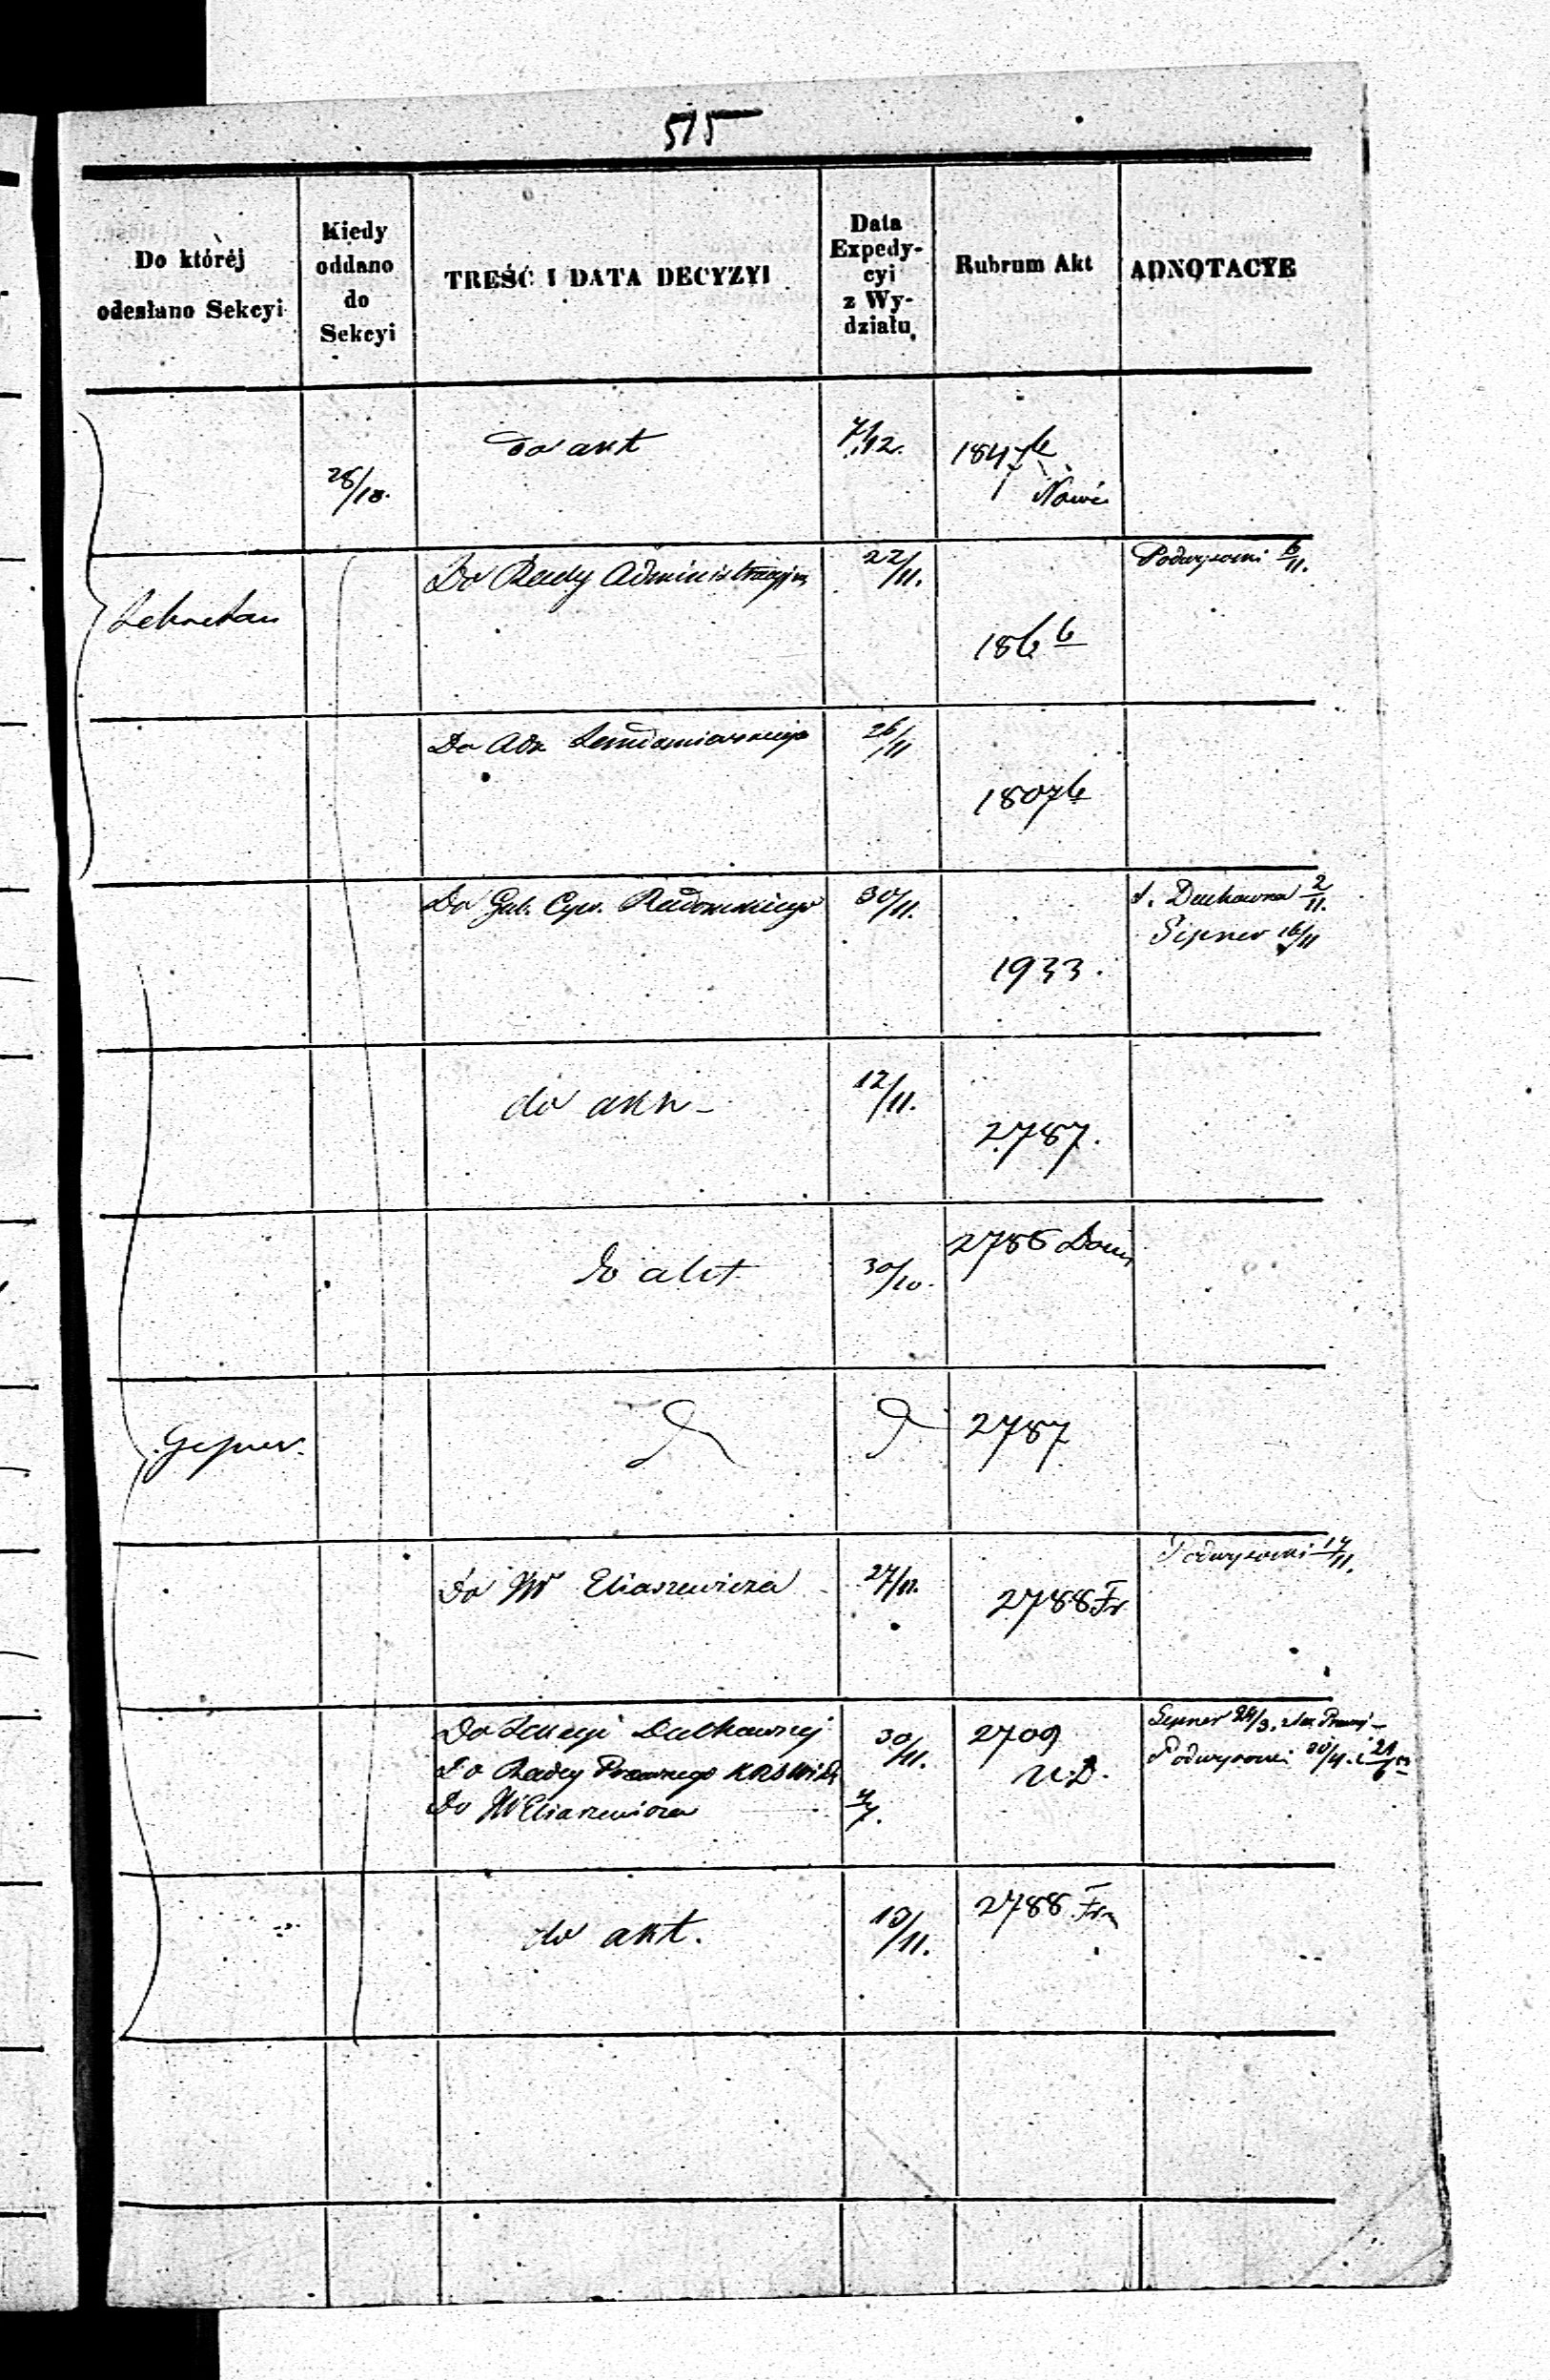 515
Do któréj
odesłano Sekcyi
Kiedy
oddano
do
Sekcyi
TREŚĆ I DATA DECYZYI
Data
Expedy-
cyi
z Wy-
działu
Rubrum Akt
ADNOTACYE
28/10.
do akt
7/12.
1847
Do Rady Administracyjn
22/11.
186 b
Podwysocki 6/11.
Do Adr
26/11
1807b
Do Gub. Cyw. Radomskiego
30/11.
1933.
S. Duchowna 2/11.
Gepner 16/11
do akt
12/11.
2787.
do akt
30/10.
2786
Gepner.
2787
Do Wº Eliaszewicza
27/11.
2788 Fr
Podwysocki 14/11.
Do Sekcyi Duchownej
Do Radcy Prawnego
Do Wº Eliaszewicza
30/11.
2709
U.D.
Gepner 24/3.
Podwysocki
do akt.
13/11.
2788